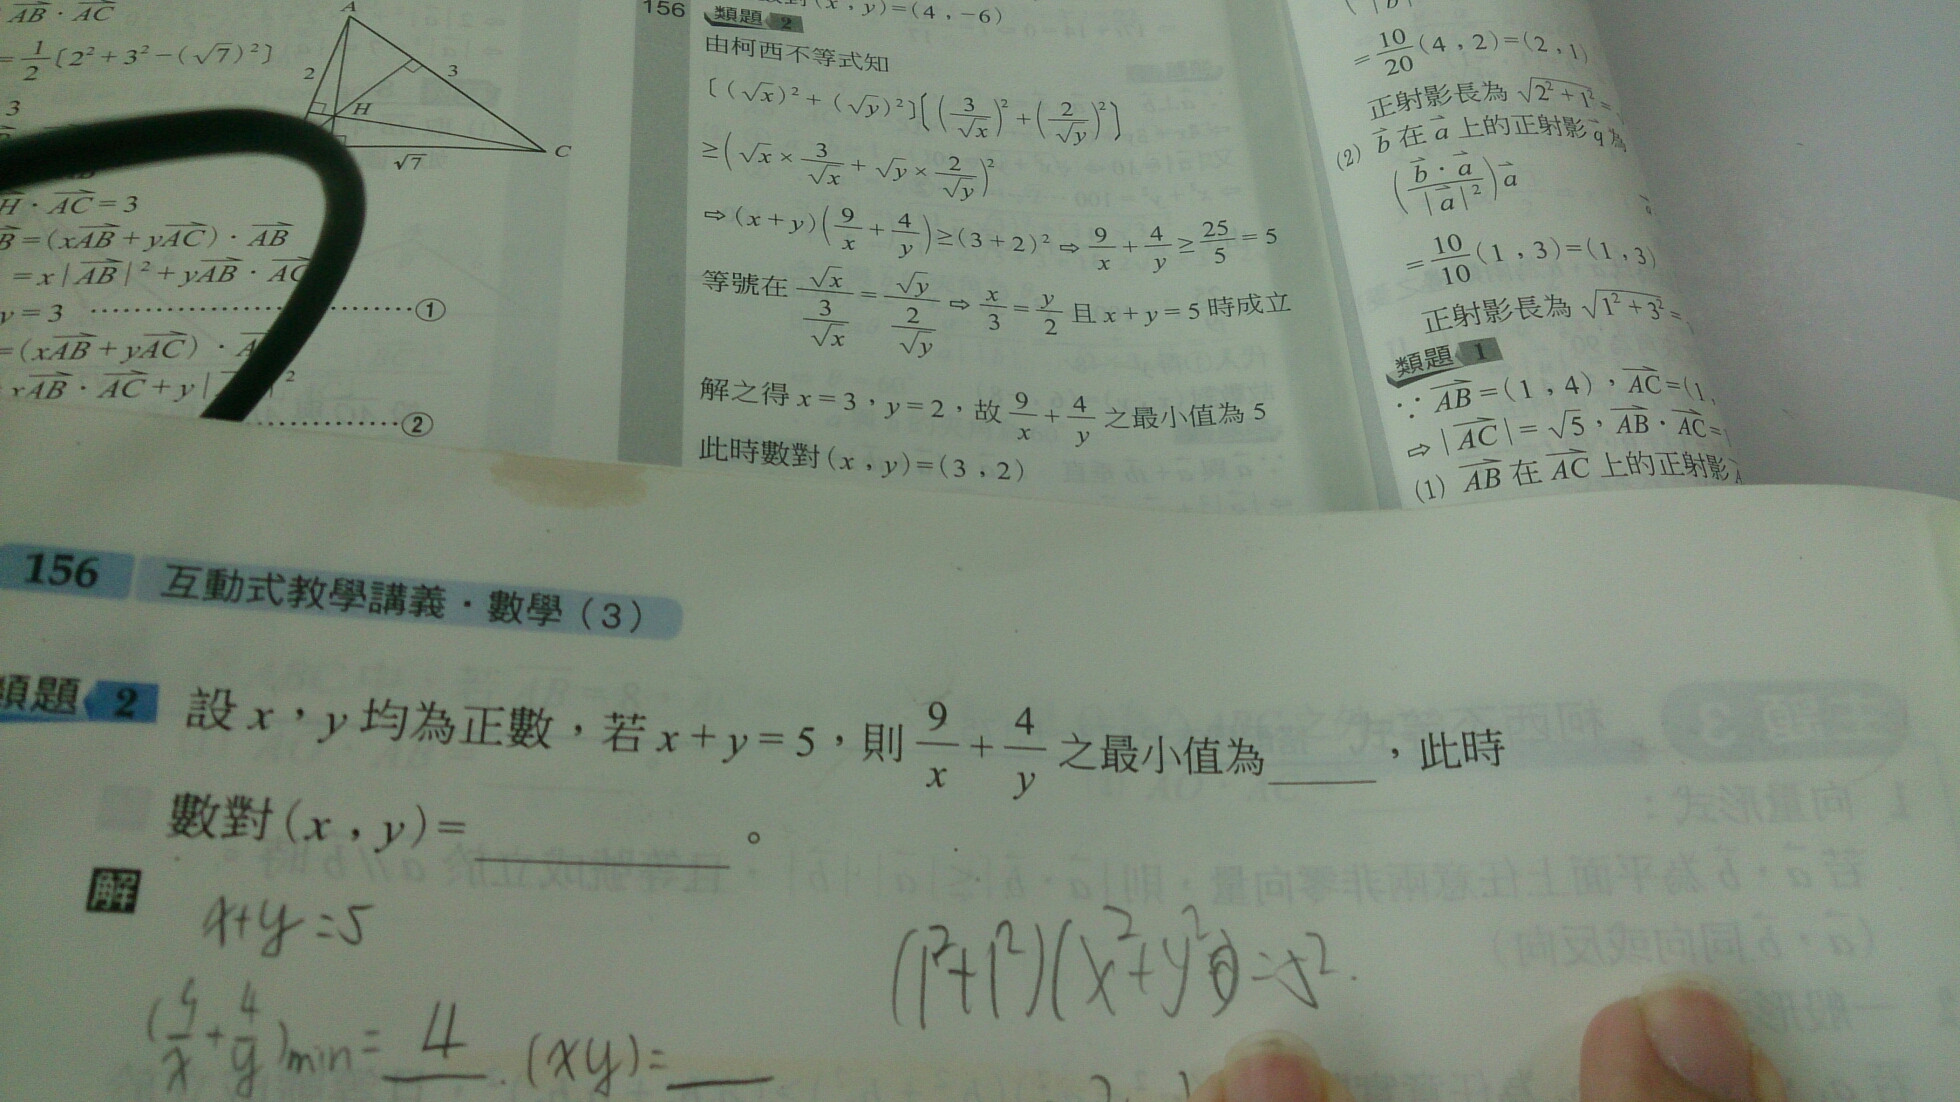 AB · AC
= 1/2 [2² + 3² − (√7)²]
3
A
2
3
H
√7
C
H · AC = 3
B = (xAB + yAC) · AB
= x|AB|² + yAB · AC
y = 3 ……………①
= (xAB + yAC) ·
xAB · AC + y| |²
……………②
156
(x , y) = (4 , −6)
類題 2
由柯西不等式知
[(√x)² + (√y)²][(3/√x)² + (2/√y)²]
≥ (√x × 3/√x + √y × 2/√y)²
⇨ (x + y)(9/x + 4/y) ≥ (3 + 2)² ⇨ 9/x + 4/y ≥ 25/5 = 5
等號在 √x/(3/√x) = √y/(2/√y) ⇨ x/3 = y/2 且 x + y = 5 時成立
解之得 x = 3,y = 2,故 9/x + 4/y 之最小值為 5
此時數對 (x , y) = (3 , 2)
= 10/20 (4 , 2) = (2 , 1)
正射影長為 √(2² + 1²) =
(2) b 在 a 上的正射影 q 為
(b · a / |a|²) a
= 10/10 (1 , 3) = (1 , 3)
正射影長為 √(1² + 3²) =
類題 1
∵ AB = (1 , 4),AC = (1,
⇨ |AC| = √5,AB · AC =
(1) AB 在 AC 上的正射影
156 互動式教學講義.數學(3)
類題 2 設 x,y 均為正數,若 x + y = 5,則 9/x + 4/y 之最小值為____,此時
數對 (x , y) = ________。
解
x+y=5
(1²+1²)(x²+y²)=5².
(9/x + 4/y)min = 4 . (xy) = ___